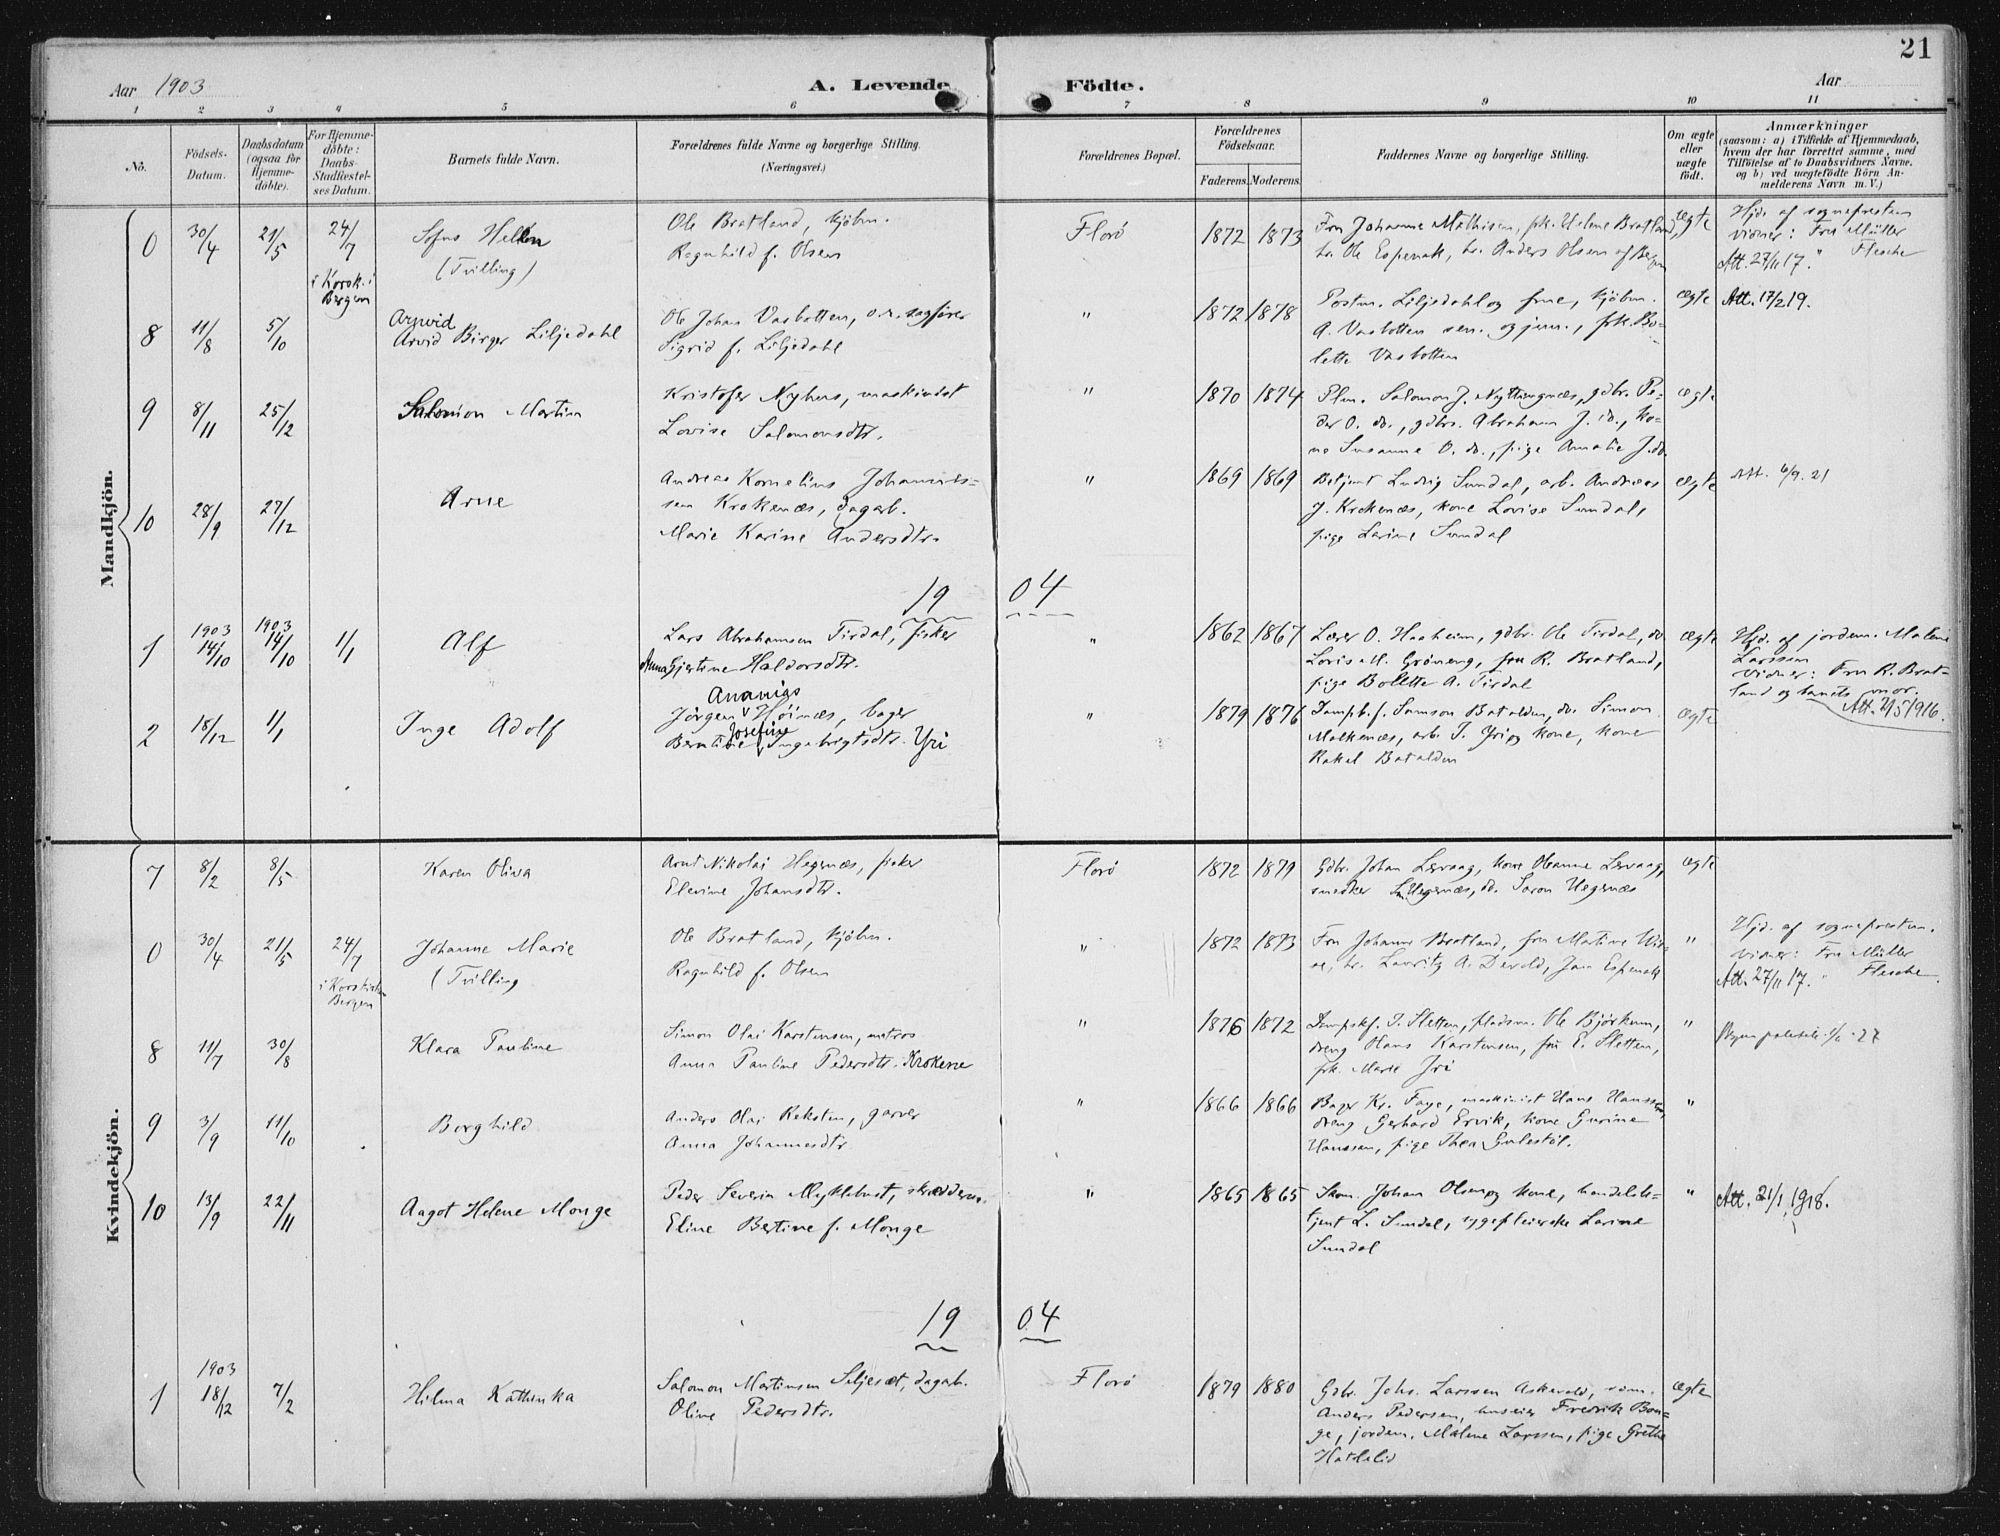 21
Aar 1903
A. Levende
Födte.
Aar
1 2 3 4 5 6 7 8 9 10 11
No.
Födsels-
Datum.
Daabsdatum
(ogsaa for
Hjemme-
döbte).
For Hjemme-
döbte:
Daabs-
Stadfestel-
ses Datum.
Barnets fulde Navn.
Forældrenes fulde Navne og borgerlige Stilling.
(Næringsvei.)
Forældrenes Bopæl.
Forældrenes
Födselsaar.
Faderens. Moderens.
Faddernes Navne og borgerlige Stilling.
Om ægte
eller
uægte
födt.
Anmærkninger
(saasom: a) i Tilfælde af Hjemmedaab,
hvem der har forrettet samme, med
Tilföielse af to Daabsvidners Navne.
og b) ved uægtefödte Börn An-
melderens Navn m. V.)
Mandkjön.
0 30/4 21/5 24/7
i Korsk. i
Bergen
Sofus
(Tvilling)
Ole Bratland, kjöbm.
Ragnhild f. Olsen
Florö
1872 1873
Fru Johanne Mathisen, frk. Helene Bratland,
hr. Ole Espenak, hr. Anders Olsen af Bergen
ægte
Hjd. af sognepresten
vidner: Fru Müller
Att. 27/11 17. " Flesche
8 11/8 5/10
Arnvid
Arvid Birger Liljedahl
Ole Johan Vasbotten, o.r.sagförer
Sigrid f. Liljedahl
"
1872 1878
Postm. Liljedahl og frue, kjöbm.
A. Vasbotten sen. og jun., frk. Bo-
lette Vasbotten
ægte
Att. 17/2 19.
9 8/11 25/12
Salomon Martin
Kristofer Nyhus, maskinist
Lovise Salomonsdtr.
"
1870 1874
Salomon J. Nyttingnæs, gdbr. Pe-
der O. do., gdbr. Abraham J. do., ko-
ne Susanne O. do., pige Amalie J. do.
ægte
10 28/9 27/12
Arne
Andreas Kornelius Johannes-
sen Krokenæs, dagarb.
Marie Karine Andersdtr.
"
1869 1869
Betjent Ludvig Sundal, arb. Andreas
J. Krokenæs, kone Lovise Sundal,
pige Larine Sundal
ægte
Att. 6/9. 21
19 04
1 1903 14/10 1903 14/10 1/1
Alf
Lars Abrahamsen Tirdal, fisker
Anna Gjertine Haldorsdtr.
"
1862 1867
Lærer O. Haaheim, gdbr. Ole Tirdal, do
Lovise M. Gröneng, fru R. Bratland,
pige Bolette A. Tirdal
ægte
Hjd. af jordem. Malene
Larssen
vidner: Fru R. Brat-
land og barnets mor.
Att. 2/5 1916.
2 18/12 1/1
Inge Adolf
Ananias
Jörgen Höinæs, bager
Josefine
Berntine Ingebrigtsdtr. Yri
"
1879 1876
Dampb.f. Samson Batalden, do. Simon
Malkenæs, arb. T. Yri og kone, kone
Rakel Batalden
ægte
Kvindekjön.
7 8/2 8/5
Karen Oliva
Arnt Nikolai Hegenæs, fisker
Elevine Johansdtr.
Florö
1872 1879
Gdbr. Johan Lervaag, kone Oleanne Lervaag,
snedker Hegenæs, do. Saron Hegenæs
ægte
0 30/4 21/5 24/7
i Korskirken
Bergen
Johanne Marie
(Tvilling
Ole Bratland, kjöbm.
Ragnhild f. Olsen
"
1872 1873
Fru Johanne Bratland, fru Martine Wii-
se, hr. Lauritz A. Devold, Jan Espenak
"
Hjd. af sognepresten.
vidner: Fru Müller
Att. 27/11 17. " Flesche.
8 11/7 30/8
Klara Pauline
Simon Olai Karstensen, matros
Anna Pauline Pedersdtr. Krokene
"
1876 1872
Dampskf. J. Sletten, pladsm. Ole Björkum,
dreng Hans Karstensen, fru E. Sletten,
frk. Marie Yri
"
27
9 3/9 11/10
Borghild
Anders Olai Reksten, garver
Anna Johannesdtr
"
1866 1866
Bager Kr. Faye, maskinist Hans Hanssen,
dreng Gerhard Ervik, kone Gurine
Hanssen, pige Thea Gulestöl.
"
10 13/9 22/11
Aagot Helene Monge
Peder Severin Myklebust, skrædderm.
Eline Bertine f. Monge
"
1865 1865
Skom. Johan Olsen og kone, handelsbe-
tjent L. Sundal, sygepleierske Larine
Sundal
"
Att. 21/1 1918.
19 04
1 1903 18/12 7/2
Hilma Kathinka
Salomon Martinsen Seljesæt, dagarb.
Oline Pedersdtr.
Florö
1879 1880
Gdbr. Johs. Larssen Askevold, söm.
Anders Pedersen, huseier Fredrik Bon-
ge, jordem. Malene Larssen, pige Grethe
Hatlelid
ægte